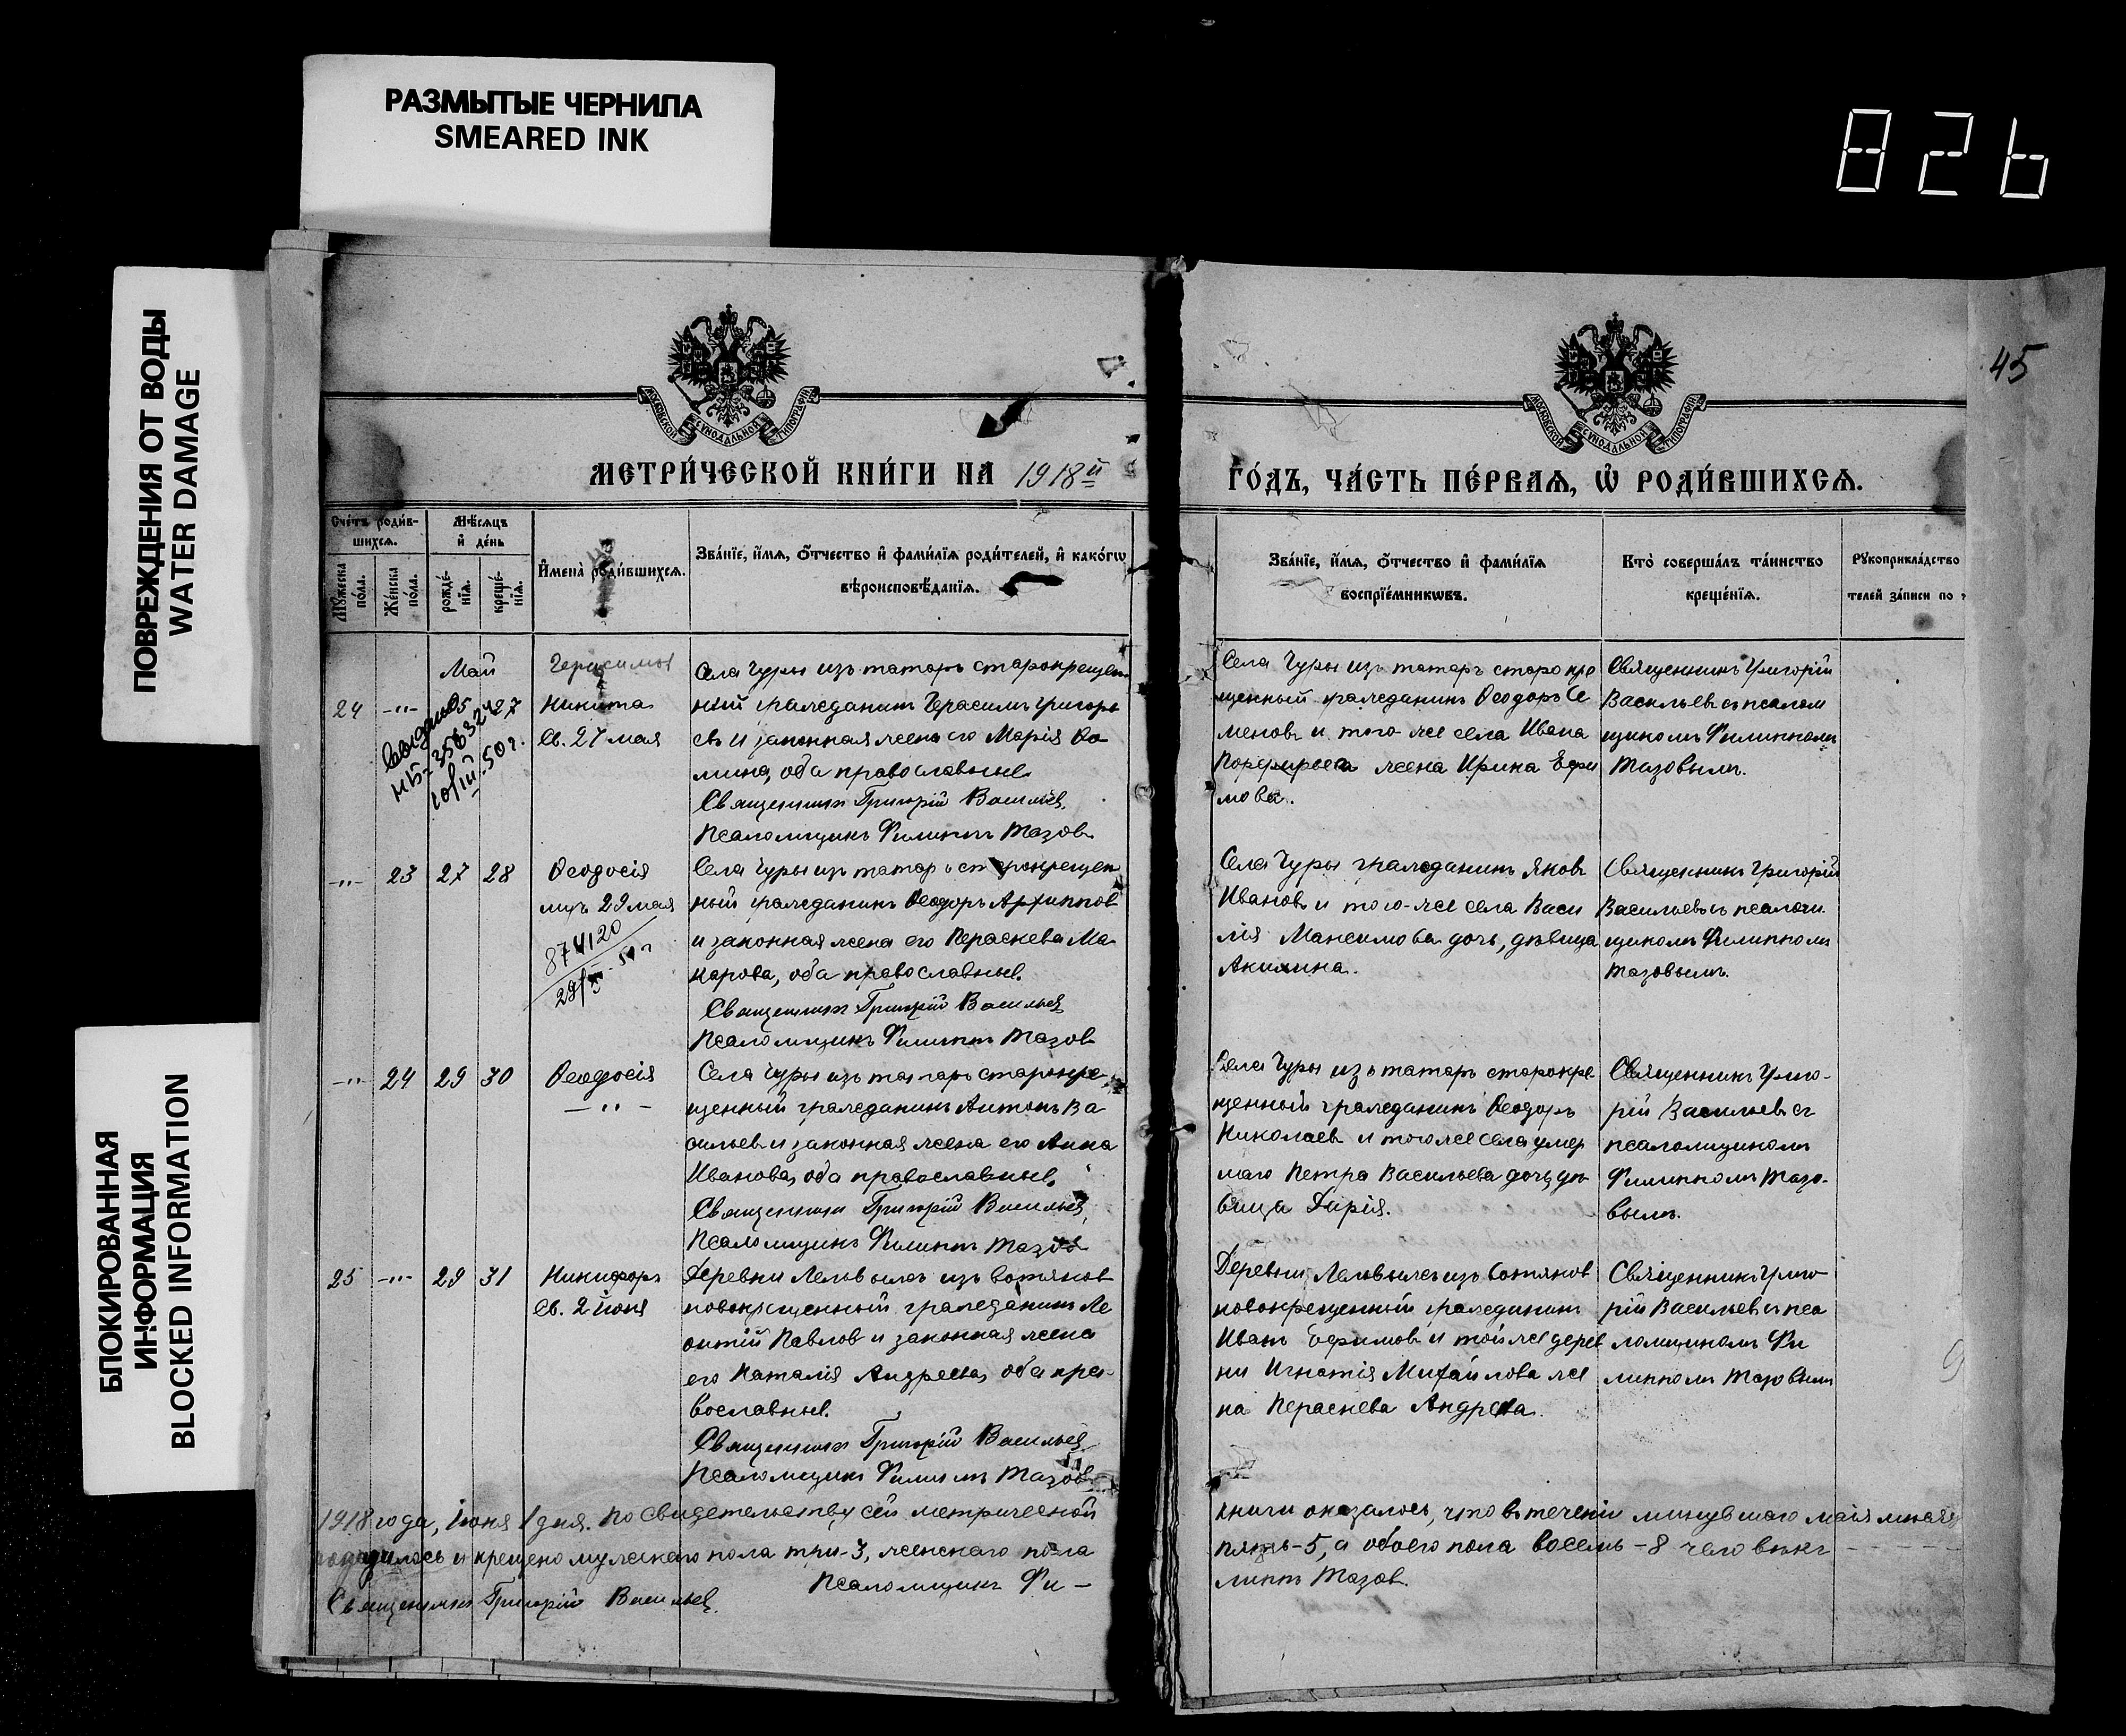 РАЗМЫТЫЕ ЧЕРНИЛА
SMEARED INK
826
ПОВРЕЖДЕНИЯ ОТ ВОДЫ
WATER DAMAGE
БЛОКИРОВАННАЯ
ИНФОРМАЦИЯ
BLOCKED INFORMATION
45
МОСКОВСКОЙ СУНОДАЛЬНОЙ ТИПОГРАФІИ
МОСКОВСКОЙ СУНОДАЛЬНОЙ ТИПОГРАФІИ
МЕТРИ́ЧЕСКОЙ КНИ́ГИ НА 1918й
ГО́ДЪ, ЧА́СТЬ ПЕ́РВАѦ, Ѡ҆ РОДИ́ВШИХСѦ.
Сче́тъ роди́вшихсѧ.
Мѹ́жеска по́ла.
Же́нска по́ла.
Мѣ́сѧцъ и҆ де́нь
рожде́нїѧ.
креще́нїѧ.
И҆мена̀ роди́вшихсѧ.
Зва́нїе, и҆́мѧ, ѻ҆́тчество и҆ фами́лїѧ роди́телей, и҆ како́гѡ
вѣроисповѣ́данїѧ.
Зва́нїе, и҆́мѧ, ѻ҆́тчество и҆ фами́лїѧ
воспрїе́мникѡвъ.
Кто̀ соверша́лъ та́инство
креще́нїѧ.
Рѹкоприкла́дство
телей за́писи по
Май
24 -"- 25 27
Выдано
10/III.50г.
Герасимов
Никита
Св. 27 мая
Села Чуры изъ татаръ старокрещен
ный гражданинъ Герасимъ Григорь
евъ и законная жена его Марія Ѳо
мина, оба православные.
Священникъ Григорій Васильев
Псаломщикъ Филиппъ Тазов
Села Чуры изъ татаръ старокре
щенный гражданинъ Ѳеодоръ Се
меновъ и того-же села Ивана
Порфирьева жена Ирина Ефи
мова.
Священникъ Григорій
Васильевъ съ псалом
щикомъ Филиппомъ
Тазовымъ.
-"- 23 27 28
Ѳеодосія
29 мая
874120
Села Чуры изъ татаръ старокрещен
ный гражданинъ Ѳеодоръ Архиппов
и законная жена его Параскева Ма
карова, оба православные.
Священникъ Григорій Васильев
Псаломщикъ Филиппъ Тазов
Села Чуры гражданинъ Яковъ
Ивановъ и того-же села Васи
лія Максимова дочь, дѣвица
Акилина.
Священникъ Григорій
Васильевъ съ псалом
щикомъ Филиппомъ
Тазовымъ.
-"- 24 29 30
Ѳеодосія
-"-
Села Чуры изъ татаръ старокре
щенный гражданинъ Антонъ Ва
сильев и законная жена его Анна
Иванова, оба православные.
Священникъ Григорій Васильев
Псаломщикъ Филиппъ Тазов
Села Чуры изъ татаръ старокре
щенный гражданинъ Ѳеодоръ
Николаев и того же села умер
шаго Петра Васильева дочь дѣ
вица Дарія.
Священникъ Григо-
рій Васильевъ съ
псаломщикомъ
Филиппомъ Тазо-
вымъ.
25 -"- 29 31
Никифоръ
Св. 2 іюня
Деревни изъ вотяков
новокрещенный гражданинъ Ле
онтій Павлов и законная жена
его Наталія Андреева, оба пра-
вославные.
Священникъ Григорій Васильев
Псаломщикъ Филиппъ Тазов
Деревни изъ вотяков
новокрещенный гражданинъ
Иванъ Ефимов и той же дерев
ни Игнатія Михайлова же
на Параскева Андреева.
Священникъ Григо-
рій Васильев съ пса
ломщикомъ Фи
липпомъ Тазовымъ
1918 года, Іюня 1 дня. По свидетельству сей метрической
родилось и крещено мужскаго пола три-3, женскаго пола
Псаломщикъ Фи-
Священникъ Григорій Васильев.
книги оказалось, что въ теченіи минувшаго мая месяца
пять-5, а обоего пола восемь-8 человѣкъ
липпъ Тазов.